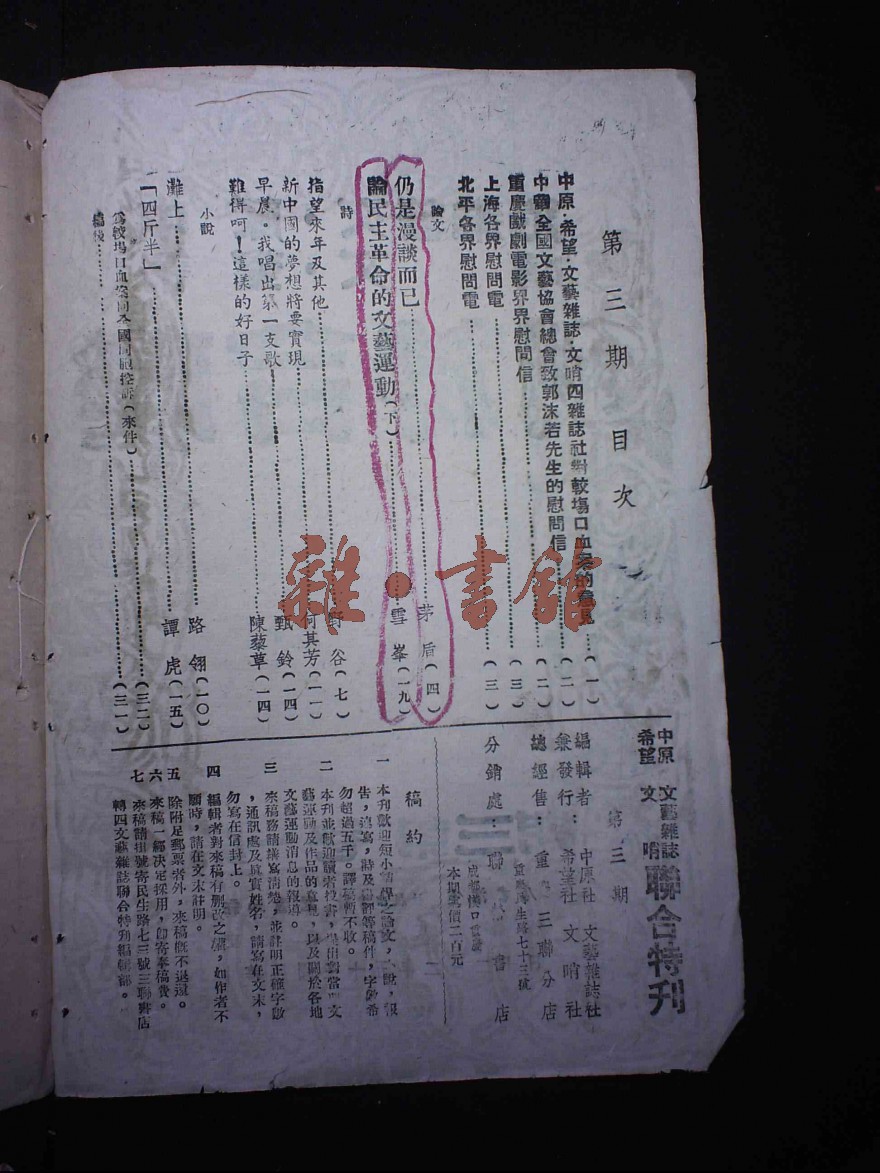 第三期目次
中原·希望·文藝雜誌·文哨四雜誌社對較場口血案的意見……(一)
中華全國文藝協會總會致郭沫若先生的慰問信……(二)
重慶戲劇電影界慰問信……(三)
上海各界慰問電
北平各界慰問電……(三)
論文
仍是漫談而已……茅盾(四)
論民主革命的文藝運動(下)……雪峯(一九)
詩
指望來年及其他……野谷(七)
新中國的夢想將要實現……何其芳(一一)
早晨·我唱出第一支歌……甄鈴(一四)
難得呵!這樣的好日子……陳藜草(一四)
小說
灘上……路翎(一〇)
「四斤半」……譚虎(一五)
爲較場口血案向全國同胞控訴(來件)……(三二)
編後……(三一)
中原 希望 文藝雜誌 文哨 聯合特刊
第三期
編輯者兼發行:中原社 文藝雜誌社 希望社 文哨社
總經售:重慶三聯分店
民生路七十三號
分銷處:聯 書店
本期 價二百元
稿約
一 本刊歡迎短小 之論文,小說,報
告,速寫,詩及 評等稿件,字數希
勿超過五千。譯稿暫不收。
二 本刊並歡迎讀者投書,提出對當前文
藝運動及作品的意見,以及關於各地
文藝運動消息的報道。
三 來稿務請繕寫清楚,並註明正確字數
,通訊處及眞實姓名,請寫在文末,
勿寫在信封上。
四 編輯者對來稿有刪改之權,如作者不
願時,請在文末註明。
五 除附足郵票者外,來稿概不退還。
六 來稿一經決定採用,卽寄奉稿費。
七 來稿請掛號寄民生路七三號三聯書店
轉四文藝雜誌聯合特刊編輯部。
雜·書館